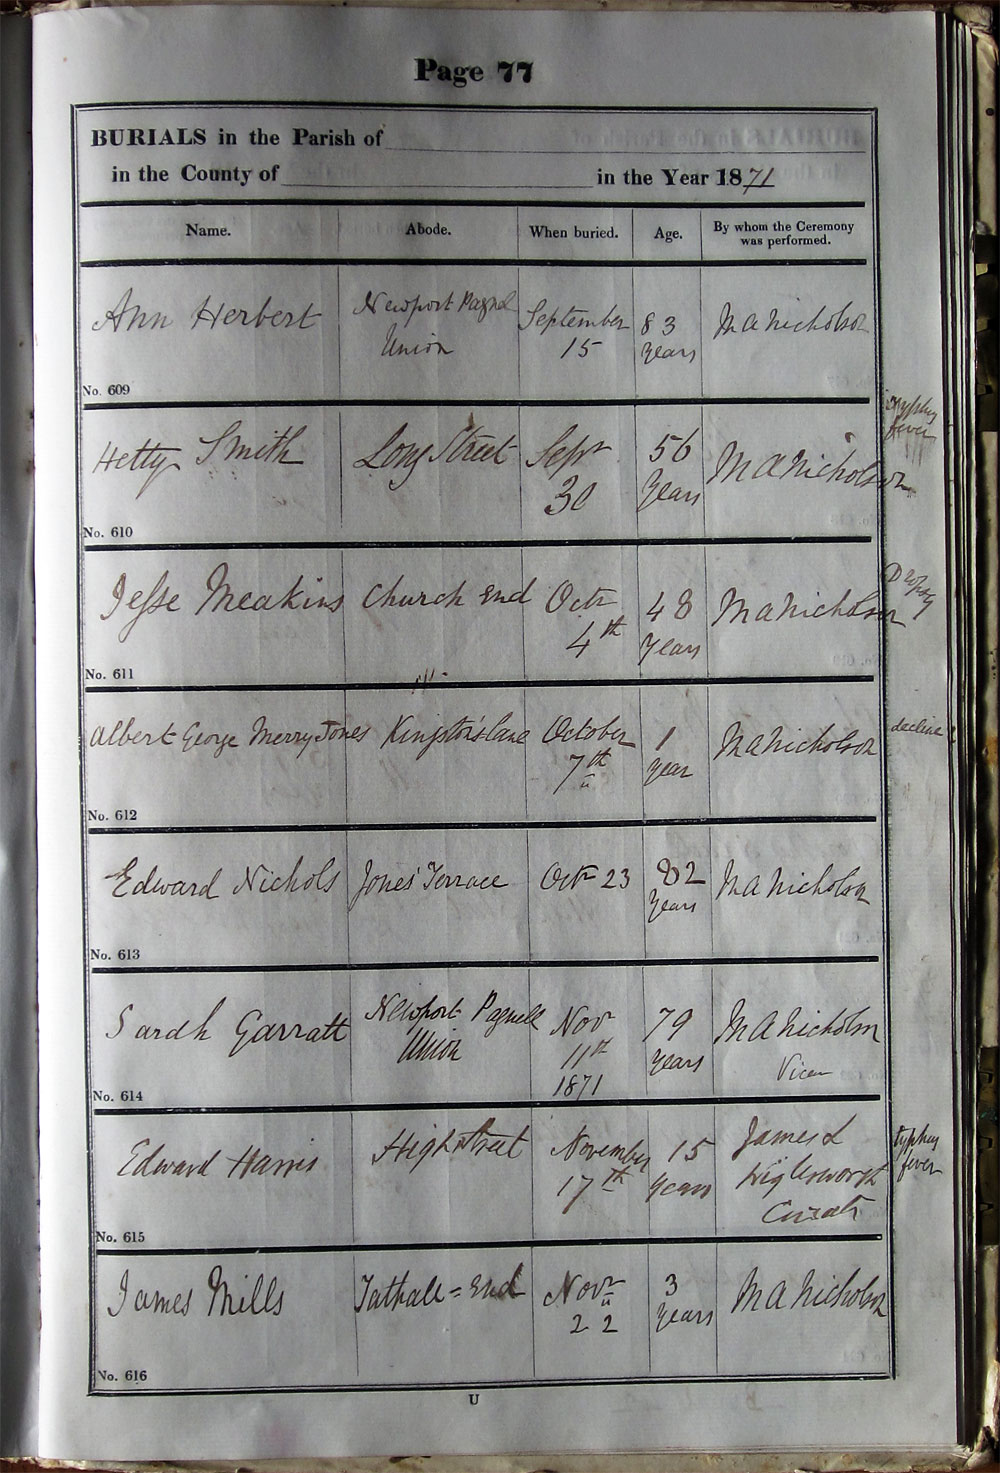 Page 77
BURIALS in the Parish of
in the County of in the Year 1871
Name. Abode. When buried. Age. By whom the Ceremony was performed.
Ann Herbert Newport Pagnel September 83 M A Nicholson
Union 15 years
No. 609
typhus
fever
Hetty Smith Long Street Sept 56 M A Nicholson
30 Years
No. 610
Dropsy
Jesse Meakins Church End Octr 48 M A Nicholson
4th Years
No. 611
Albert George Merry Jones Kingston's Lane October 1 M A Nicholson decline
7th year
No. 612
Edward Nichols Jones' Terrace Octr 23 82 M A Nicholson
Years
No. 613
Sarah Garratt Newport Pagnell Nov 79 M A Nicholson
Union 11th years Vicar
1871
No. 614
Edward Harris High Street November 15 James L typhus
17th years Wiglesworth fever
Curate
No. 615
James Mills Tathall = End Novr 3 M A Nicholson
22 Years
No. 616
U